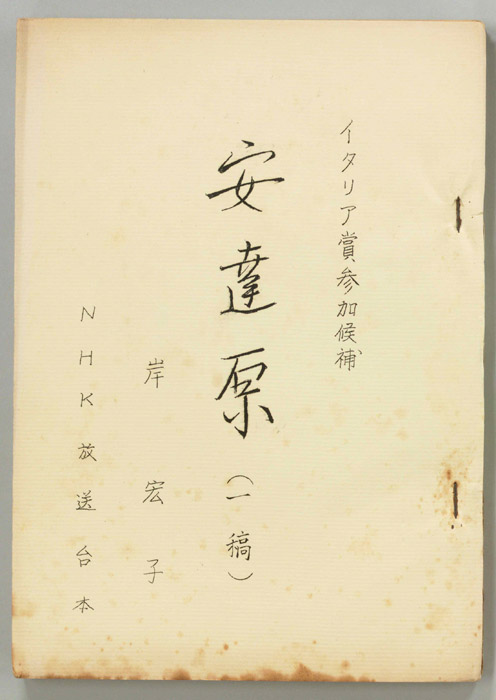 イタリア賞参加候補
安達原(一稿)
岸宏子
NHK放送台本